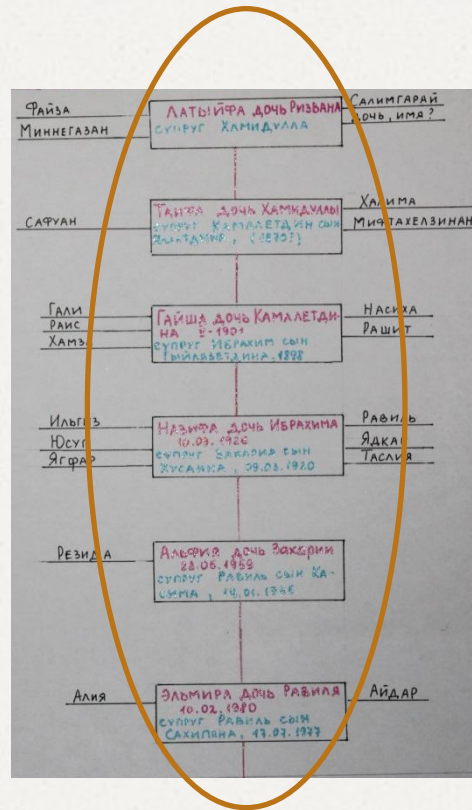 Файза
Миннегазан
Латыйфа дочь Ризвана
супруг Хамидулла
Салимгарай
дочь, имя?
Сафуан
Таифа дочь Хамидуллы
супруг Камалетдин сын
(1870?)
Халима
Мифтахелзинан
Гали
Раис
Хамза
Гайша дочь Камалетди-
на -1901
супруг Ибрахим сын
Гыйлязетдина, 1898
Насиха
Рашит
Ильгиз
Юсуп
Ягфар
Назифа дочь Ибрахима
10.03.1926
супруг сын
Хусаина, 09.03.1920
Равиль
Ядкар
Таслия
Резида
Альфия дочь Закарии
супруг Равиль сын Ка-
сима
Алия
Эльмира дочь Равиля
10.02.1980
супруг Равиль сын
17.07.1977
Айдар